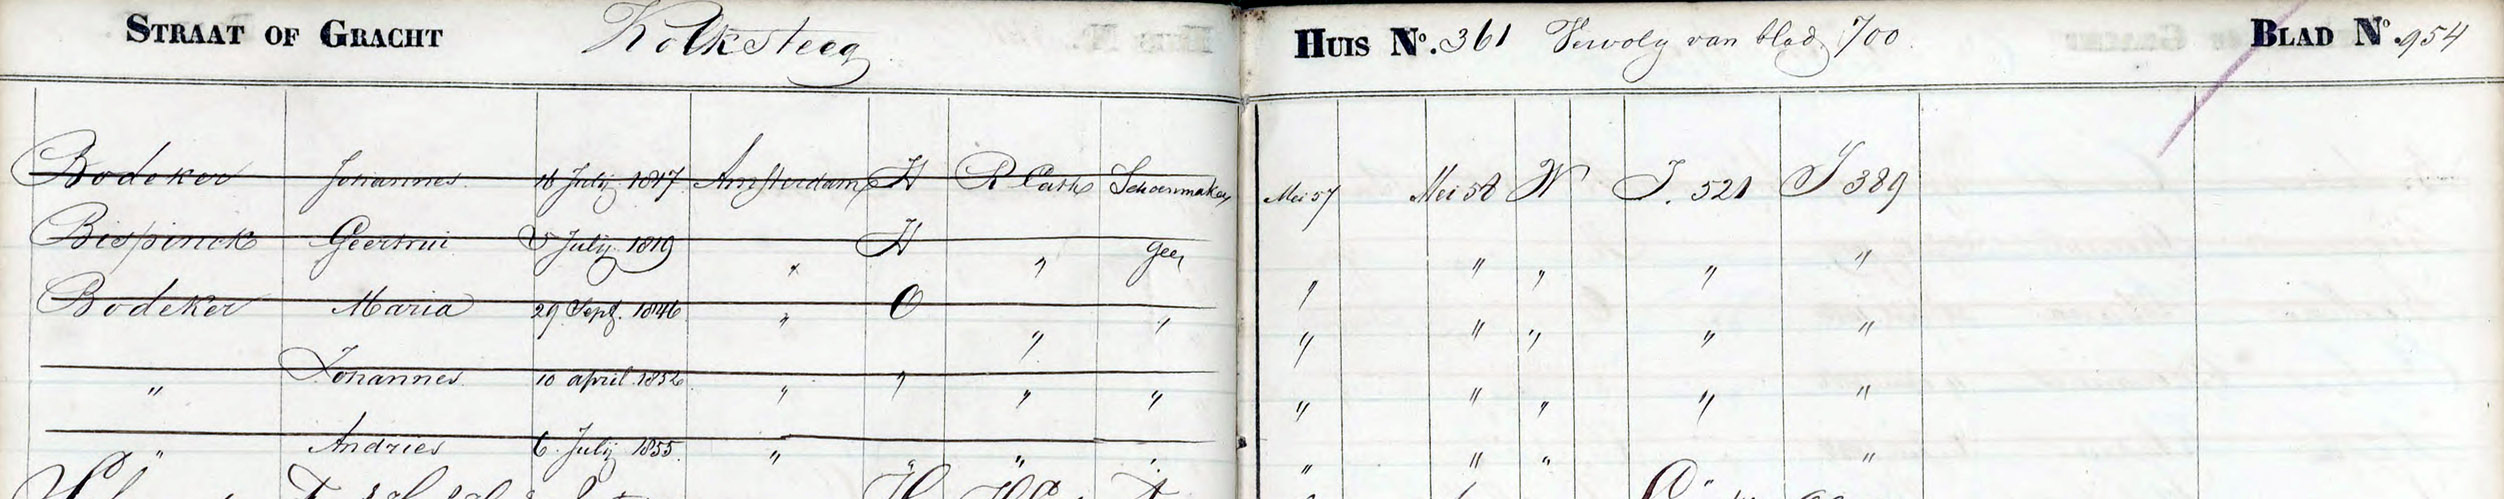 STRAAT OF GRACHT Kolksteeg HUIS No. 361 Vervolg van blad 700 BLAD No. 954
Bodeker Johannes 16 July 1817 Amsterdam H R Cath Schoenmaker Mei 57 Mei 58 W J. 521 J 389
Bispinck Geertrui 5 July 1819 " H " geen " " " " "
Bodeker Maria 29 Sept. 1846 " O " " " " " " "
" Johannes 10 april 1852 " " " " " " " " "
" Andries 6 July 1855 " " " " " " " " "